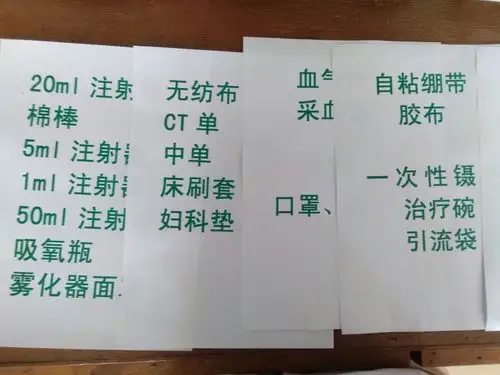 20ml 注射
棉棒
5ml 注射
1ml 注射
50ml 注射
吸氧瓶
雾化器面
无纺布
CT 单
中单
床刷套
妇科垫
血气
采血
口罩、
自粘绷带
胶布
一次性镊
治疗碗
引流袋